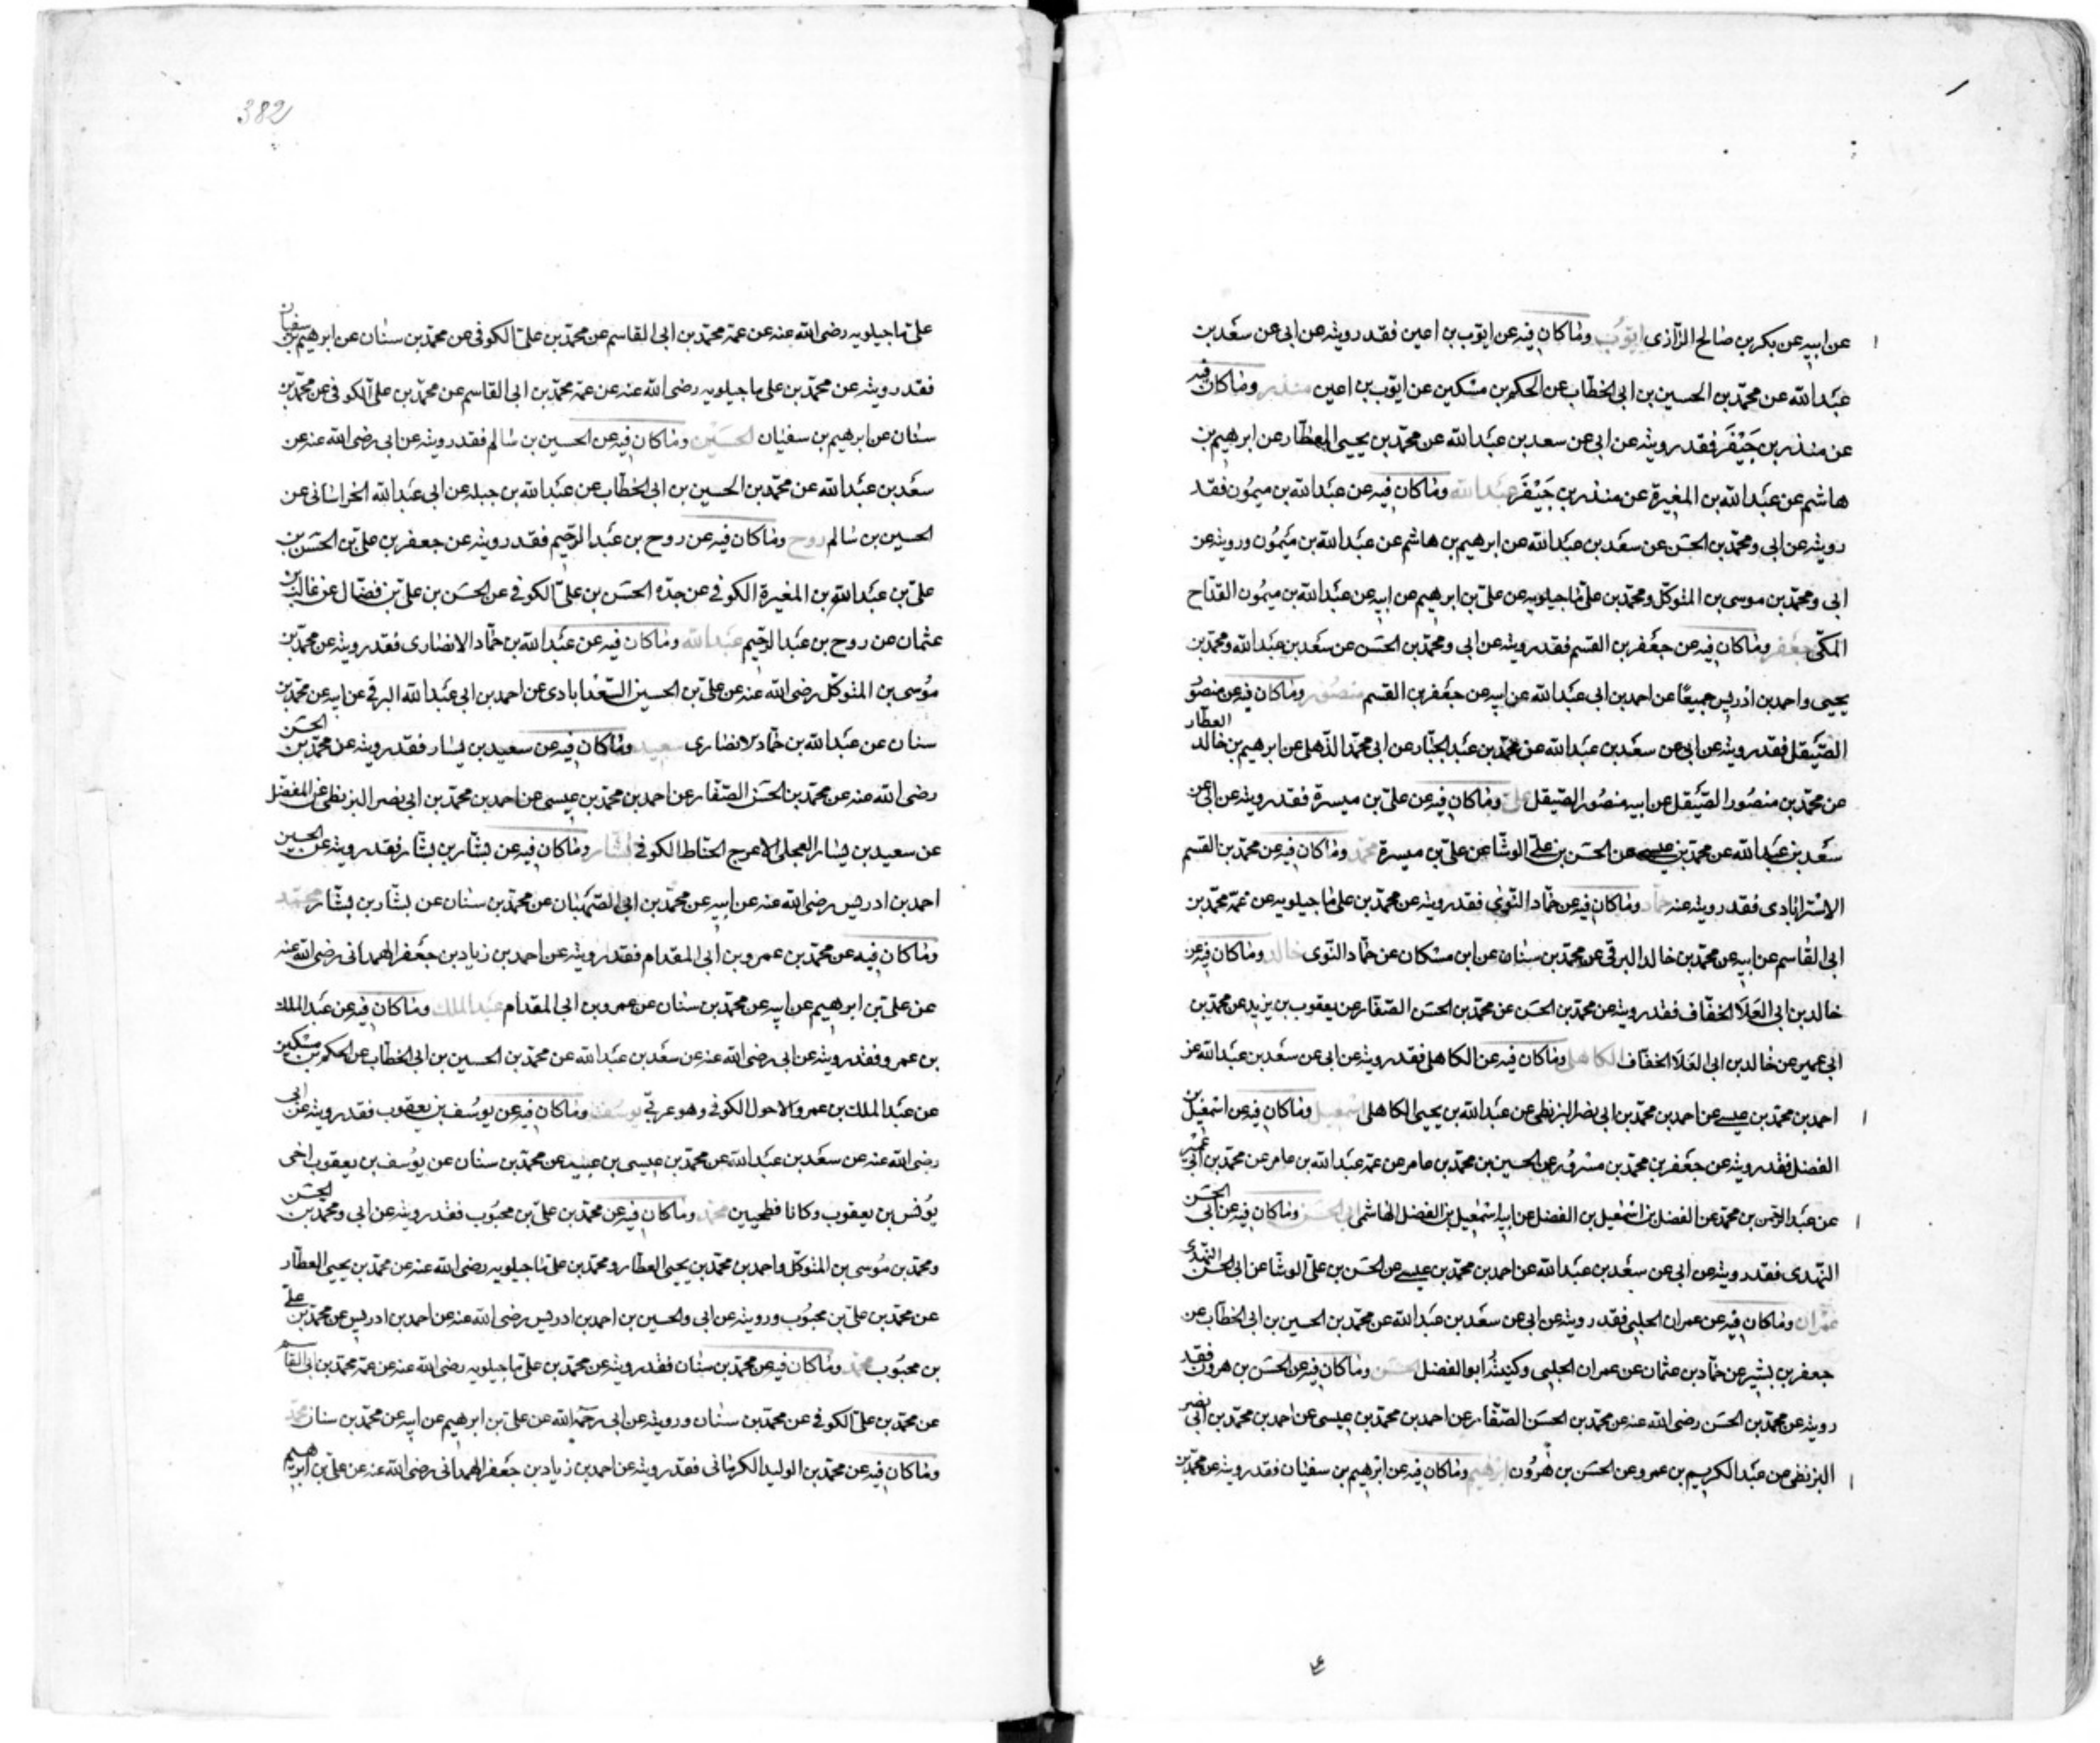 عن ابيه عن بكر بن صالح الرازى ايوب وما كان فيه عن ايوب بن اعين فقد رويته عن ابى عن سعد بن
عبد الله عن محمد بن الحسين بن ابى الخطاب عن الحكم بن مسكين عن ايوب بن اعين منذر وما كان فيه
عن منذر بن جيفر فقد رويته عن ابى عن سعد بن عبد الله عن محمد بن يحيى العطار عن ابرهيم بن
هاشم عن عبد الله بن المغيرة عن منذر بن جيفر عبد الله وما كان فيه عن عبد الله بن ميمون فقد
رويته عن ابى ومحمد بن الحسن عن سعد بن عبد الله عن ابرهيم بن هاشم عن عبد الله بن ميمون ورويته عن
ابى ومحمد بن موسى بن المتوكل ومحمد بن على ماجيلويه عن على بن ابرهيم عن ابيه عن عبد الله بن ميمون القداح
المكى جعفر وما كان فيه عن جعفر بن القسم فقد رويته عن ابى ومحمد بن الحسن عن سعد بن عبد الله ومحمد بن
يحيى واحمد بن ادريس جميعا عن احمد بن ابى عبد الله عن ابيه عن جعفر بن القسم منصور وما كان فيه عن منصور
الصيقل فقد رويته عن ابى عن سعد بن عبد الله عن محمد بن عبد الجبار عن ابى محمد الذهلى عن ابرهيم بن خالد العطار
عن محمد بن منصور الصيقل عن ابيه منصور الصيقل على وما كان فيه عن على بن ميسرة فقد رويته عن ابى عن
سعد بن عبد الله عن محمد بن عيسى عن الحسن بن على الوشا عن على بن ميسرة محمد وما كان فيه عن محمد بن القسم
الاسترابادى فقد رويته عنه حماد وما كان فيه عن حماد النوى فقد رويته عن محمد بن على ماجيلويه عن عمه محمد بن
ابى القاسم عن ابيه عن محمد بن خالد البرقى عن محمد بن سنان عن ابن مسكان عن حماد النوى خالد وما كان فيه عن
خالد بن ابى العلا الخفاف فقد رويته عن محمد بن الحسن عن محمد بن الحسن الصفار عن يعقوب بن يزيد عن محمد بن
ابى عمير عن خالد بن ابى العلا الخفاف الكاهلى وما كان فيه عن الكاهلى فقد رويته عن ابى عن سعد بن عبد الله عن
احمد بن محمد بن عيسى عن احمد بن محمد بن ابى نصر البزنطى عن عبد الله بن يحيى الكاهلى اسمعيل وما كان فيه عن اسمعيل بن
الفضل فقد رويته عن جعفر بن محمد بن مسرور عن الحسين بن محمد بن عامر عن عمه عبد الله بن عامر عن محمد بن ابى عمير
عن عبد الرحمن بن محمد عن الفضل بن اسمعيل بن الفضل عن ابيه اسمعيل بن الفضل الهاشمى ابى الحسن وما كان فيه عن ابى الحسن
النهدى فقد رويته عن ابى عن سعد بن عبد الله عن احمد بن محمد بن عيسى عن الحسن بن على الوشا عن ابى الحسن النهدى
عمران وما كان فيه عن عمران الحلبى فقد رويته عن ابى عن سعد بن عبد الله عن محمد بن الحسين بن ابى الخطاب عن
جعفر بن بشير عن حماد بن عثمان عن عمران الحلبى وكنيته ابو الفضل الحسن وما كان فيه عن الحسن بن هرون فقد
رويته عن محمد بن الحسن رضى الله عنه عن محمد بن الحسن الصفار عن احمد بن محمد بن عيسى عن احمد بن محمد بن ابى نصر
البزنطى عن عبد الكريم بن عمرو عن الحسن بن هرون ابرهيم وما كان فيه عن ابرهيم بن سفيان فقد رويته عن محمد بن
382
على ماجيلويه رضى الله عنه عن عمه محمد بن ابى القاسم عن محمد بن على الكوفى عن محمد بن سنان عن ابرهيم بن سفيان
فقد رويته عن محمد بن على ماجيلويه رضى الله عنه عن عمه محمد بن ابى القاسم عن محمد بن على الكوفى عن محمد بن
سنان عن ابرهيم بن سفيان الحسين وما كان فيه عن الحسين بن سالم فقد رويته عن ابى رضى الله عنه عن
سعد بن عبد الله عن محمد بن الحسين بن ابى الخطاب عن عبد الله بن جبله عن ابى عبد الله الخراسانى عن
الحسين بن سالم روح وما كان فيه عن روح بن عبد الرحيم فقد رويته عن جعفر بن على بن الحسن بن
على بن عبد الله بن المغيرة الكوفى عن جده الحسن بن على الكوفى عن الحسن بن على بن فضال عن غالب بن
عثمان عن روح بن عبد الرحيم عبد الله وما كان فيه عن عبد الله بن حماد الانصارى فقد رويته عن محمد بن
موسى بن المتوكل رضى الله عنه عن على بن الحسين السعدابادى عن احمد بن ابى عبد الله البرقى عن ابيه عن محمد بن
سنان عن عبد الله بن حماد الانصارى سعيد وما كان فيه عن سعيد بن يسار فقد رويته عن محمد بن الحسن
رضى الله عنه عن محمد بن الحسن الصفار عن احمد بن محمد بن عيسى عن احمد بن محمد بن ابى نصر البزنطى عن المفضل
عن سعيد بن يسار العجلى الاعرج الحناط الكوفى بشار وما كان فيه عن بشار بن بشار فقد رويته عن الحسين
احمد بن ادريس رضى الله عنه عن ابيه عن محمد بن ابى الصهبان عن محمد بن سنان عن بشار بن بشار محمد
وما كان فيه عن محمد بن عمرو بن ابى المقدام فقد رويته عن احمد بن زياد بن جعفر الهمدانى رضى الله عنه
عن على بن ابرهيم عن ابيه عن محمد بن سنان عن عمرو بن ابى المقدام عبد الملك وما كان فيه عن عبد الملك
بن عمرو فقد رويته عن ابى رضى الله عنه عن سعد بن عبد الله عن محمد بن الحسين بن ابى الخطاب عن الحكم بن مسكين
عن عبد الملك بن عمرو الاحول الكوفى وهو عربى يوسف وما كان فيه عن يوسف بن يعقوب فقد رويته عن ابى
رضى الله عنه عن سعد بن عبد الله عن محمد بن عيسى بن عبيد عن محمد بن سنان عن يوسف بن يعقوب اخى
يونس بن يعقوب وكانا فطحيين محمد وما كان فيه عن محمد بن على بن محبوب فقد رويته عن ابى ومحمد بن الحسن
ومحمد بن موسى بن المتوكل واحمد بن محمد بن يحيى العطار ومحمد بن على ماجيلويه رضى الله عنه عن محمد بن يحيى العطار
عن محمد بن على بن محبوب ورويته عن ابى والحسين بن احمد بن ادريس رضى الله عنه عن احمد بن ادريس عن محمد بن على
بن محبوب محمد وما كان فيه عن محمد بن سنان فقد رويته عن محمد بن على ماجيلويه رضى الله عنه عن عمه محمد بن ابى القاسم
عن محمد بن على الكوفى عن محمد بن سنان ورويته عن ابى رحمه الله عن على بن ابرهيم عن ابيه عن محمد بن سنان محمد
وما كان فيه عن محمد بن الوليد الكرمانى فقد رويته عن احمد بن زياد بن جعفر الهمدانى رضى الله عنه عن على بن ابرهيم